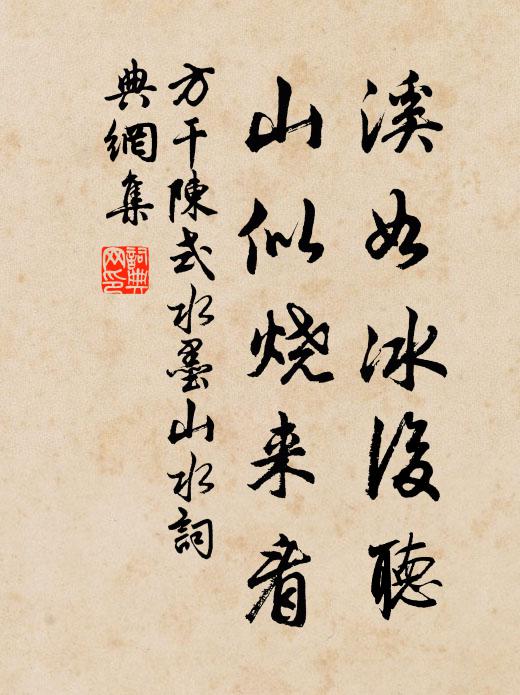 溪如冰後聽
山似烧来看
方干陳式水墨山水詞
典網集
詞典網印